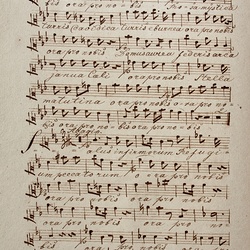 ora pro nobis Rosa mystica
Turris Davidica Turris eburnea ora pro nobis
ora pro nobis Domus aurea foederis arca
janua Cæli ora pro nobis Stella
matutina ora pro nobis ora pro nobis
ora pro nobis ora pro nobis
Salus infirmorum Refugi
um peccatorum ora pro nobis
ora pro nobis ora pro nobis
ora pro nobis ora pro
nobis ora pro nobis